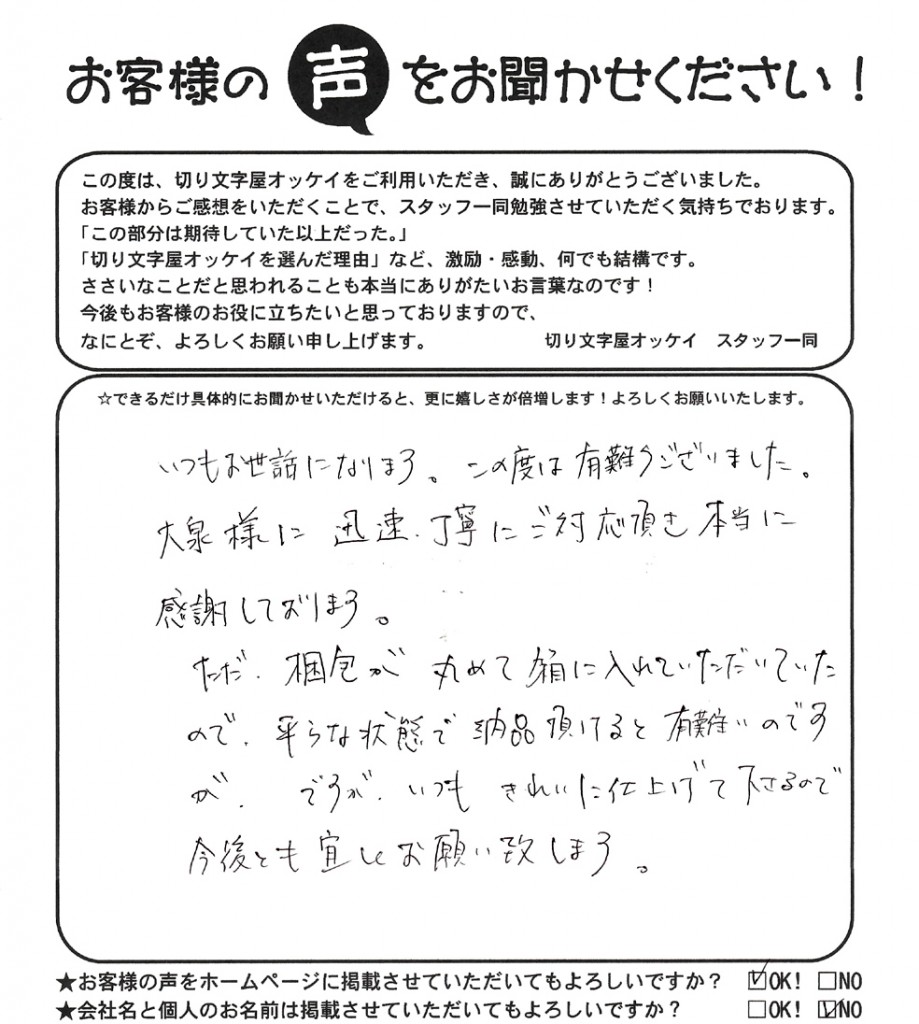 お客様の声をお聞かせください！
この度は、切り文字屋オッケイをご利用いただき、誠にありがとうございました。
お客様からご感想をいただくことで、スタッフ一同勉強させていただく気持ちでおります。
「この部分は期待していた以上だった。」
「切り文字屋オッケイを選んだ理由」など、激励・感動、何でも結構です。
ささいなことだと思われることも本当にありがたいお言葉なのです！
今後もお客様のお役に立ちたいと思っておりますので、
なにとぞ、よろしくお願い申し上げます。 切り文字屋オッケイ スタッフ一同
☆できるだけ具体的にお聞かせいただけると、更に嬉しさが倍増します！よろしくお願いいたします。
いつもお世話になります。この度は有難うございました。
大泉様に迅速、丁寧にご対応頂き本当に
感謝しております。
ただ、梱包が丸めて箱に入れていただいていた
ので、平らな状態で納品頂けると有難いのです
が、ですが、いつもきれいに仕上げて下さるので
今後とも宜しくお願い致します。
★お客様の声をホームページに掲載させていただいてもよろしいですか？ ☑OK！ □NO
★会社名と個人のお名前は掲載させていただいてもよろしいですか？ □OK！ ☑NO